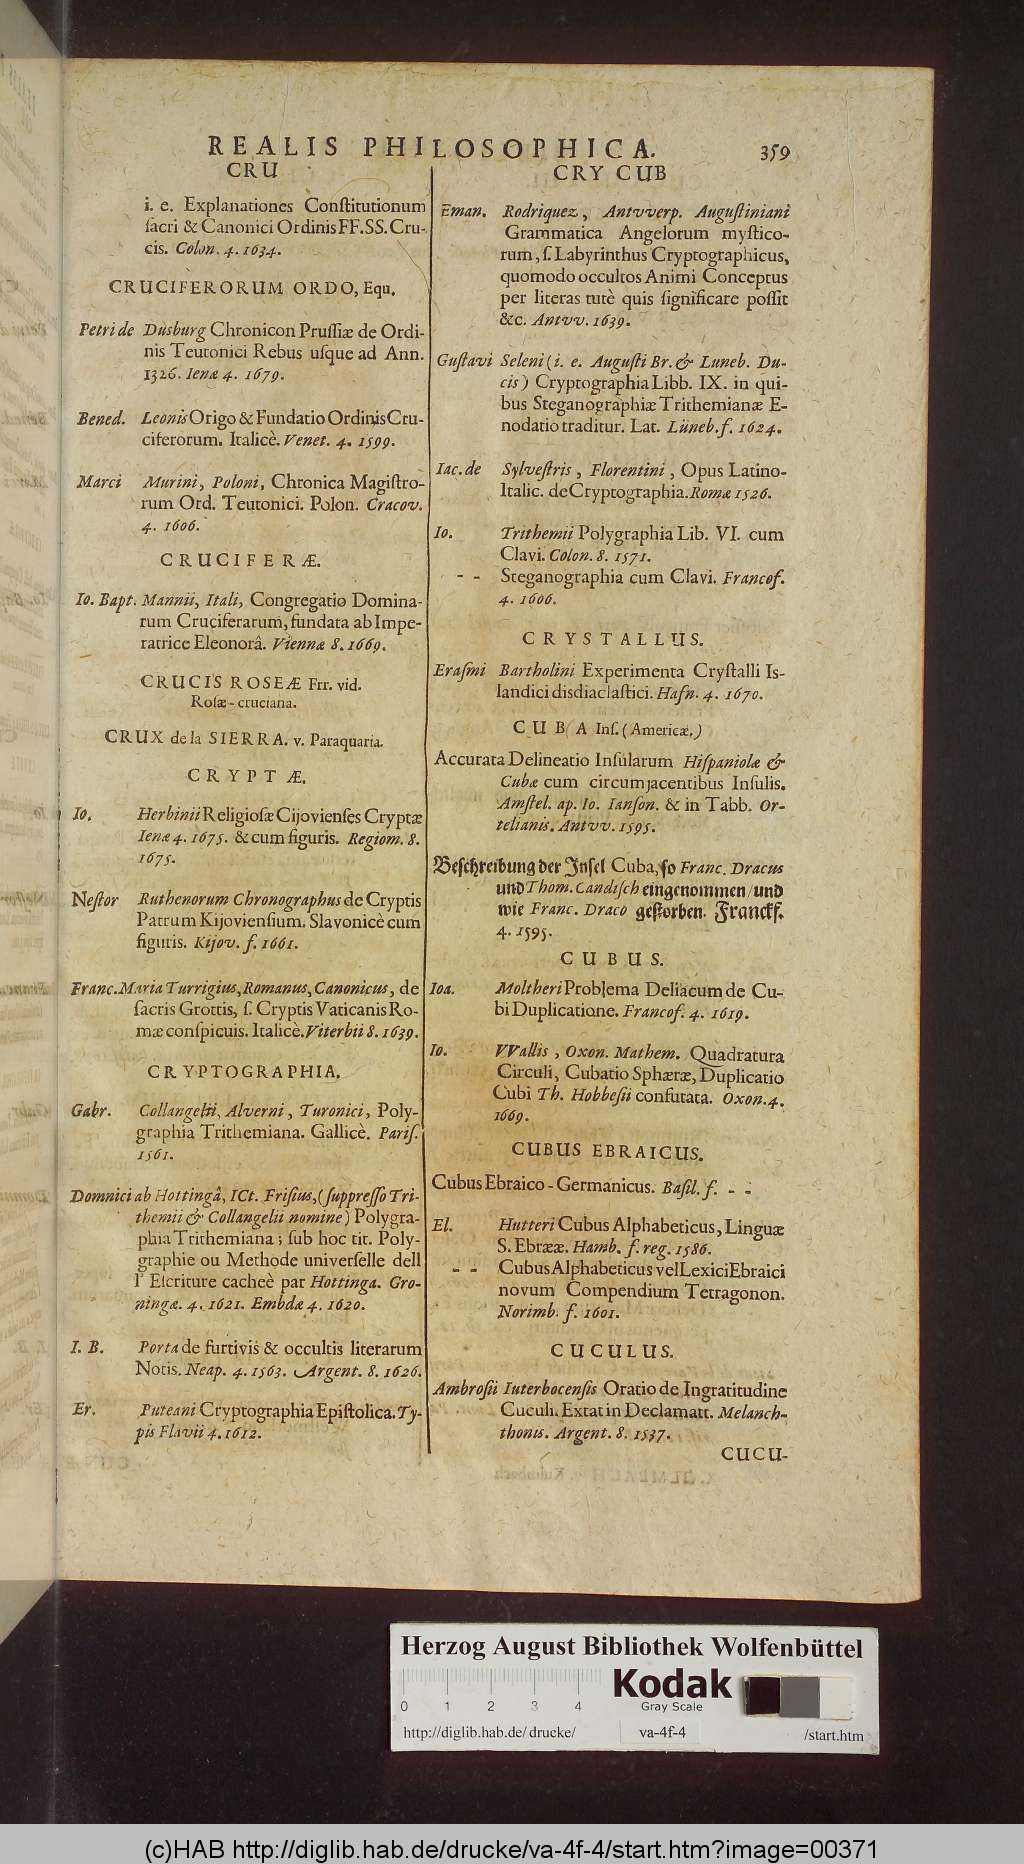 REALIS PHILOSOPHICA. 359
CRU
i. e. Explanationes Conſtitutionum
ſacri & Canonici Ordinis FF. SS. Cru-
cis. Colon. 4. 1634.
CRUCIFERORUM ORDO, Equ.
Petri de Dusburg Chronicon Pruſſiæ de Ordi-
nis Teutonici Rebus uſque ad Ann.
1326. Ienæ 4. 1679.
Bened. Leonis Origo & Fundatio Ordinis Cru-
ciferorum. Italicè. Venet. 4. 1599.
Marci Murini, Poloni, Chronica Magiſtro-
rum Ord. Teutonici. Polon. Cracov.
4. 1606.
CRUCIFERÆ.
Io. Bapt. Mannii, Itali, Congregatio Domina-
rum Cruciferarum, fundata ab Impe-
ratrice Eleonorâ. Viennæ 8. 1669.
CRUCIS ROSEÆ Frr. vid.
Roſæ-cruciana.
CRUX de la SIERRA. v. Paraquaria.
CRYPTÆ.
Io. Herbinii Religioſæ Cijovienſes Cryptæ
Ienæ 4. 1675. & cum figuris. Regiom. 8.
1675.
Neſtor Ruthenorum Chronographus de Cryptis
Patrum Kijovienſium. Slavonicè cum
figuris. Kijov. f. 1661.
Franc. Maria Turrigius, Romanus, Canonicus, de
ſacris Grottis, ſ. Cryptis Vaticanis Ro-
mæ conſpicuis. Italicè. Viterbii 8. 1639.
CRYPTOGRAPHIA.
Gabr. Collangelii, Alverni, Turonici, Poly-
graphia Trithemiana. Gallicè. Pariſ.
1561.
Domnici ab Hottingâ, ICt. Friſius, (ſuppreſſo Tri-
themii & Collangelii nomine) Polygra-
phia Trithemiana; ſub hoc tit. Poly-
graphie ou Methode univerſelle dell
l' Eſcriture cacheè par Hottinga. Gro-
ningæ. 4. 1621. Embdæ 4. 1620.
I. B. Porta de furtivis & occultis literarum
Notis. Neap. 4. 1563. Argent. 8. 1626.
Er. Puteani Cryptographia Epiſtolica. Ty-
pis Flavii 4. 1612.
CRY CUB
Eman. Rodriquez, Antvverp. Auguſtiniani
Grammatica Angelorum myſtico-
rum, ſ. Labyrinthus Cryptographicus,
quomodo occultos Animi Conceptus
per literas tutè quis ſignificare poſſit
&c. Antvv. 1639.
Guſtavi Seleni (i. e. Auguſti Br. & Luneb. Du-
cis) Cryptographia Libb. IX. in qui-
bus Steganographiæ Trithemianæ E-
nodatio traditur. Lat. Lüneb. f. 1624.
Iac. de Sylveſtris, Florentini, Opus Latino-
Italic. de Cryptographia. Romæ 1526.
Io. Trithemii Polygraphia Lib. VI. cum
Clavi. Colon. 8. 1571.
- - Steganographia cum Clavi. Francof.
4. 1606.
CRYSTALLUS.
Eraſmi Bartholini Experimenta Cryſtalli Is-
landici disdiaclaſtici. Hafn. 4. 1670.
CUBA Inſ. (Americæ,)
Accurata Delineatio Inſularum Hiſpaniolæ &
Cubæ cum circumjacentibus Inſulis.
Amſtel. ap. Io. Ianſon. & in Tabb. Or-
telianis. Antvv. 1595.
Beſchreibung der Inſel Cuba, ſo Franc. Dracus
und Thom. Candiſch eingenommen / und
wie Franc. Draco geſtorben. Franckf.
4. 1595.
CUBUS.
Ioa. Moltheri Problema Deliacum de Cu-
bi Duplicatione. Francof. 4. 1619.
Io. VVallis, Oxon. Mathem. Quadratura
Circuli, Cubatio Sphæræ, Duplicatio
Cubi Th. Hobbeſii confutata. Oxon. 4.
1669.
CUBUS EBRAICUS.
Cubus Ebraico-Germanicus. Baſil. f. - -
El. Hutteri Cubus Alphabeticus, Linguæ
S. Ebrææ. Hamb. f. reg. 1586.
- - Cubus Alphabeticus vel Lexici Ebraici
novum Compendium Tetragonon.
Norimb. f. 1601.
CUCULUS.
Ambroſii Iuterbocenſis Oratio de Ingratitudine
Cuculi. Extat in Declamatt. Melanch-
thonis. Argent. 8. 1537.
CUCU-
Herzog August Bibliothek Wolfenbüttel
0 1 2 3 4
Kodak
Gray Scale
http://diglib.hab.de/drucke/ va-4f-4 /start.htm
(c)HAB http://diglib.hab.de/drucke/va-4f-4/start.htm?image=00371